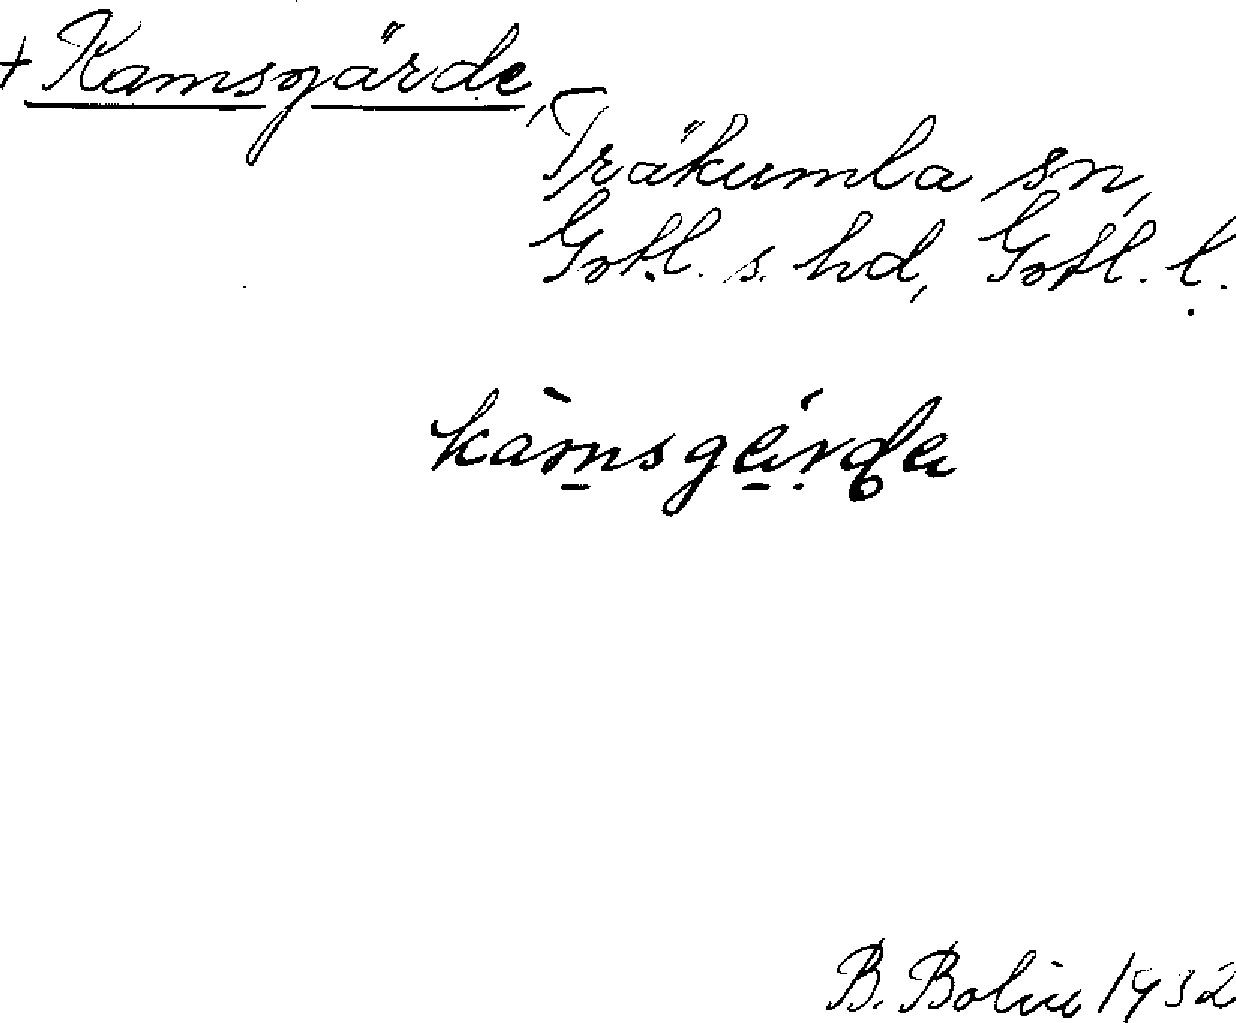 + Kamsgärde,
Träkumla sn,
Gotl. s. hd, Gotl. l.
kàmsgärde
B. Bolin 1932